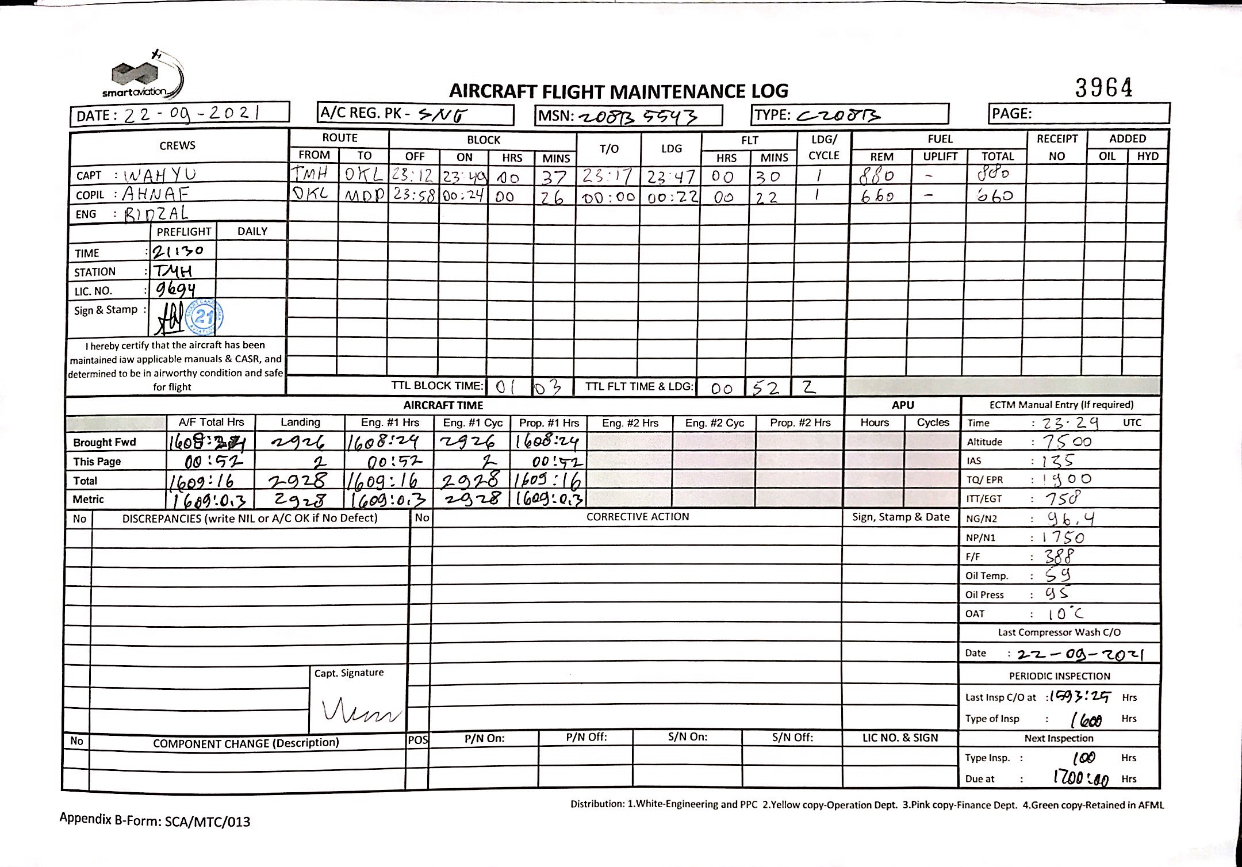 smartaviation
AIRCRAFT FLIGHT MAINTENANCE LOG
3964
DATE : 22-09-2021
A/C REG. PK - SNG
MSN: 208B 5543
TYPE: C208B
PAGE:
CREWS
ROUTE BLOCK T/O LDG FLT LDG/ CYCLE FUEL RECEIPT NO ADDED
FROM TO OFF ON HRS MINS HRS MINS REM UPLIFT TOTAL OIL HYD
CAPT : WAHYU TMH OKL 23:12 23:49 00 37 23:17 23:47 00 30 1 880 - 880
COPIL : AHNAF OKL MDP 23:58 00:24 00 26 00:00 00:22 00 22 1 660 - 660
ENG : RIDZAL
PREFLIGHT DAILY
TIME : 21:30
STATION : TMH
LIC. NO. : 9694
Sign & Stamp : 21
I hereby certify that the aircraft has been
maintained iaw applicable manuals & CASR, and
determined to be in airworthy condition and safe
for flight
TTL BLOCK TIME: 01 03 TTL FLT TIME & LDG: 00 52 2
AIRCRAFT TIME APU ECTM Manual Entry (If required)
A/F Total Hrs Landing Eng. #1 Hrs Eng. #1 Cyc Prop. #1 Hrs Eng. #2 Hrs Eng. #2 Cyc Prop. #2 Hrs Hours Cycles
Brought Fwd 1608:24 2926 1608:24 2926 1608:24
This Page 00:52 2 00:52 2 00:52
Total 1609:16 2928 1609:16 2928 1609:16
Metric 1609:0.3 2928 1609:0.3 2928 1609:0.3
Time : 23:29 UTC
Altitude : 7500
IAS : 135
TQ/ EPR : 1900
ITT/EGT : 758
NG/N2 : 96.4
NP/N1 : 1750
F/F : 388
Oil Temp. : 59
Oil Press : 95
OAT : 10°C
No DISCREPANCIES (write NIL or A/C OK if No Defect) No CORRECTIVE ACTION Sign, Stamp & Date
Last Compressor Wash C/O
Date : 22-09-2021
Capt. Signature
PERIODIC INSPECTION
Last Insp C/O at : 1593:25 Hrs
Type of Insp : 1600 Hrs
No COMPONENT CHANGE (Description) POS P/N On: P/N Off: S/N On: S/N Off: LIC NO. & SIGN
Next Inspection
Type Insp. : 100 Hrs
Due at : 1700:00 Hrs
Distribution: 1.White-Engineering and PPC 2.Yellow copy-Operation Dept. 3.Pink copy-Finance Dept. 4.Green copy-Retained in AFML
Appendix B-Form: SCA/MTC/013